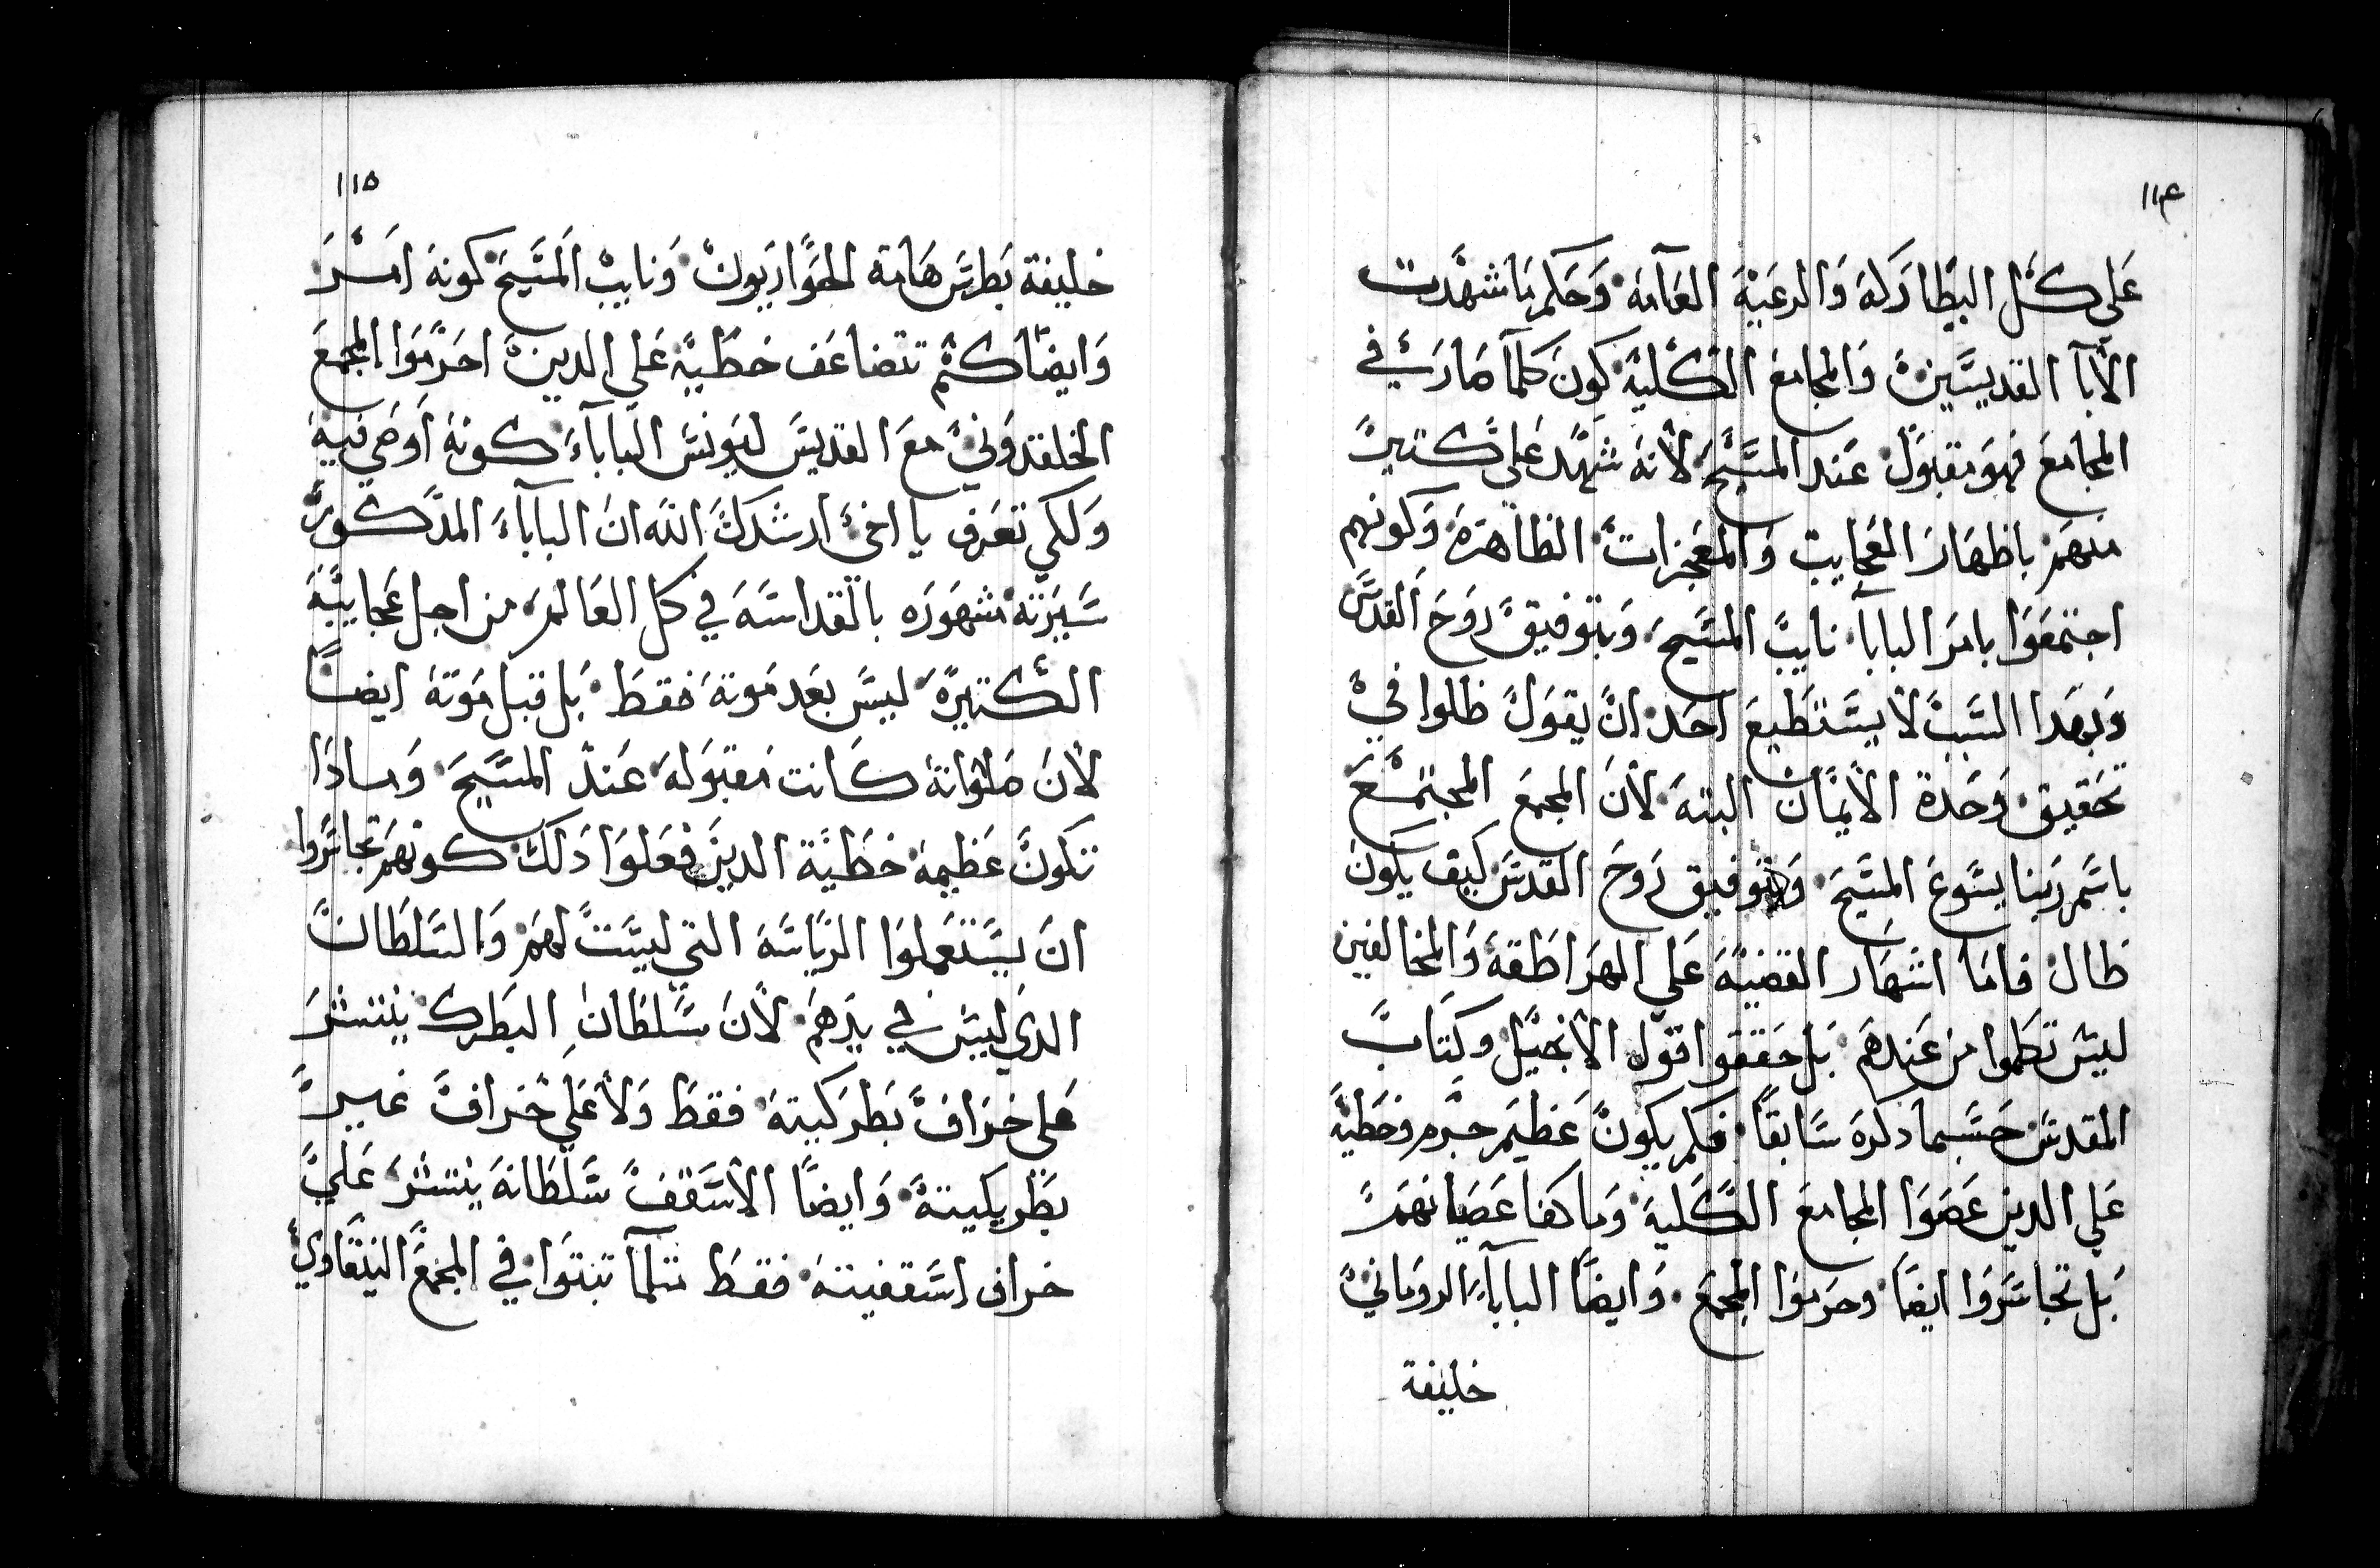 ١١٤
على كل البطاركة والرعية العامة وحكم ما شهدت
الابآ القديسين والمجامع الكلية كون كلما صار في
المجامع فهو مقبول عند المسيح لانه شهد على كتير
منهم باظهار العجايب والمعجزات الظاهرة وكونهم
اجتمعوا بامر البابآ نايب المسيح وبتوفيق روح القدس
وبهدا السبب لا يستطيع احد ان يقول ظلوا في
تحقيق وحدة الايمان البته لان المجمع المجتمع
باسم ربنا يسوع المسيح وبتوفيق روح القدس كيف يكون
ظال فاما اشهار القضية علي الهراطقة والمخالفين
ليس تكلموا من عندهم بل حققوا قول الانجيل وكتاب
المقدس حسبما دكره سابقا فكم يكون عظيم جرم وخطية
علي الدين عصوا المجامع الكلية وما كفا عصيانهم
بل تجاسروا ايضا وحرموا المجمع وايضا البابآء الروماني
خليفة
١١٥
خليفة بطرس هامة الحواريون ونايب المسيح كونه امر
وايضا كم تتضاعف خطية علي الدين احرموا المجمع
الخلقدوني مع القديس ليونس البابآء كونه اوصي فيه
ولكي تعرف يا اخي ارشدك الله ان البابآء المدكور
سيرته مشهوره بالقداسة في كل العالم من اجل عجايبه
الكتيرة ليس بعد موته فقط بل قبل موته ايضا
لان صلواته كانت مقبولة عند المسيح ومادا
تكون عظيمة خطية الدين فعلوا دلك كونهم تجاسروا
ان يستعملوا الرياسة التي ليست لهم والسلطان
الدي ليس في يدهم لان سلطان البطرك ينتشر
على خراف بطركيته فقط ولا علي خراف غير
بطريكيته وايضا الاسقف سلطانه ينتشر علي
خراف اسقفيته فقط متلمآ تبتوا في المجمع النيقاوي